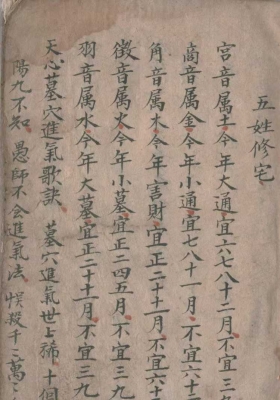 五姓修宅
宫音属土今年大通宜六七八十二月不宜三
商音属金今年小通宜七八十一月不宜六十二
角音属木今年害財宜正二十十一月不宜六十
徵音属火今年小墓宜正二四五月不宜三九
羽音属水今年大墓宜正二十十一月不宜三九
天心墓穴進氣歌訣 墓穴進氣世上稀 十個
陽九不知 愚師不会進氣法 悮殺千千萬